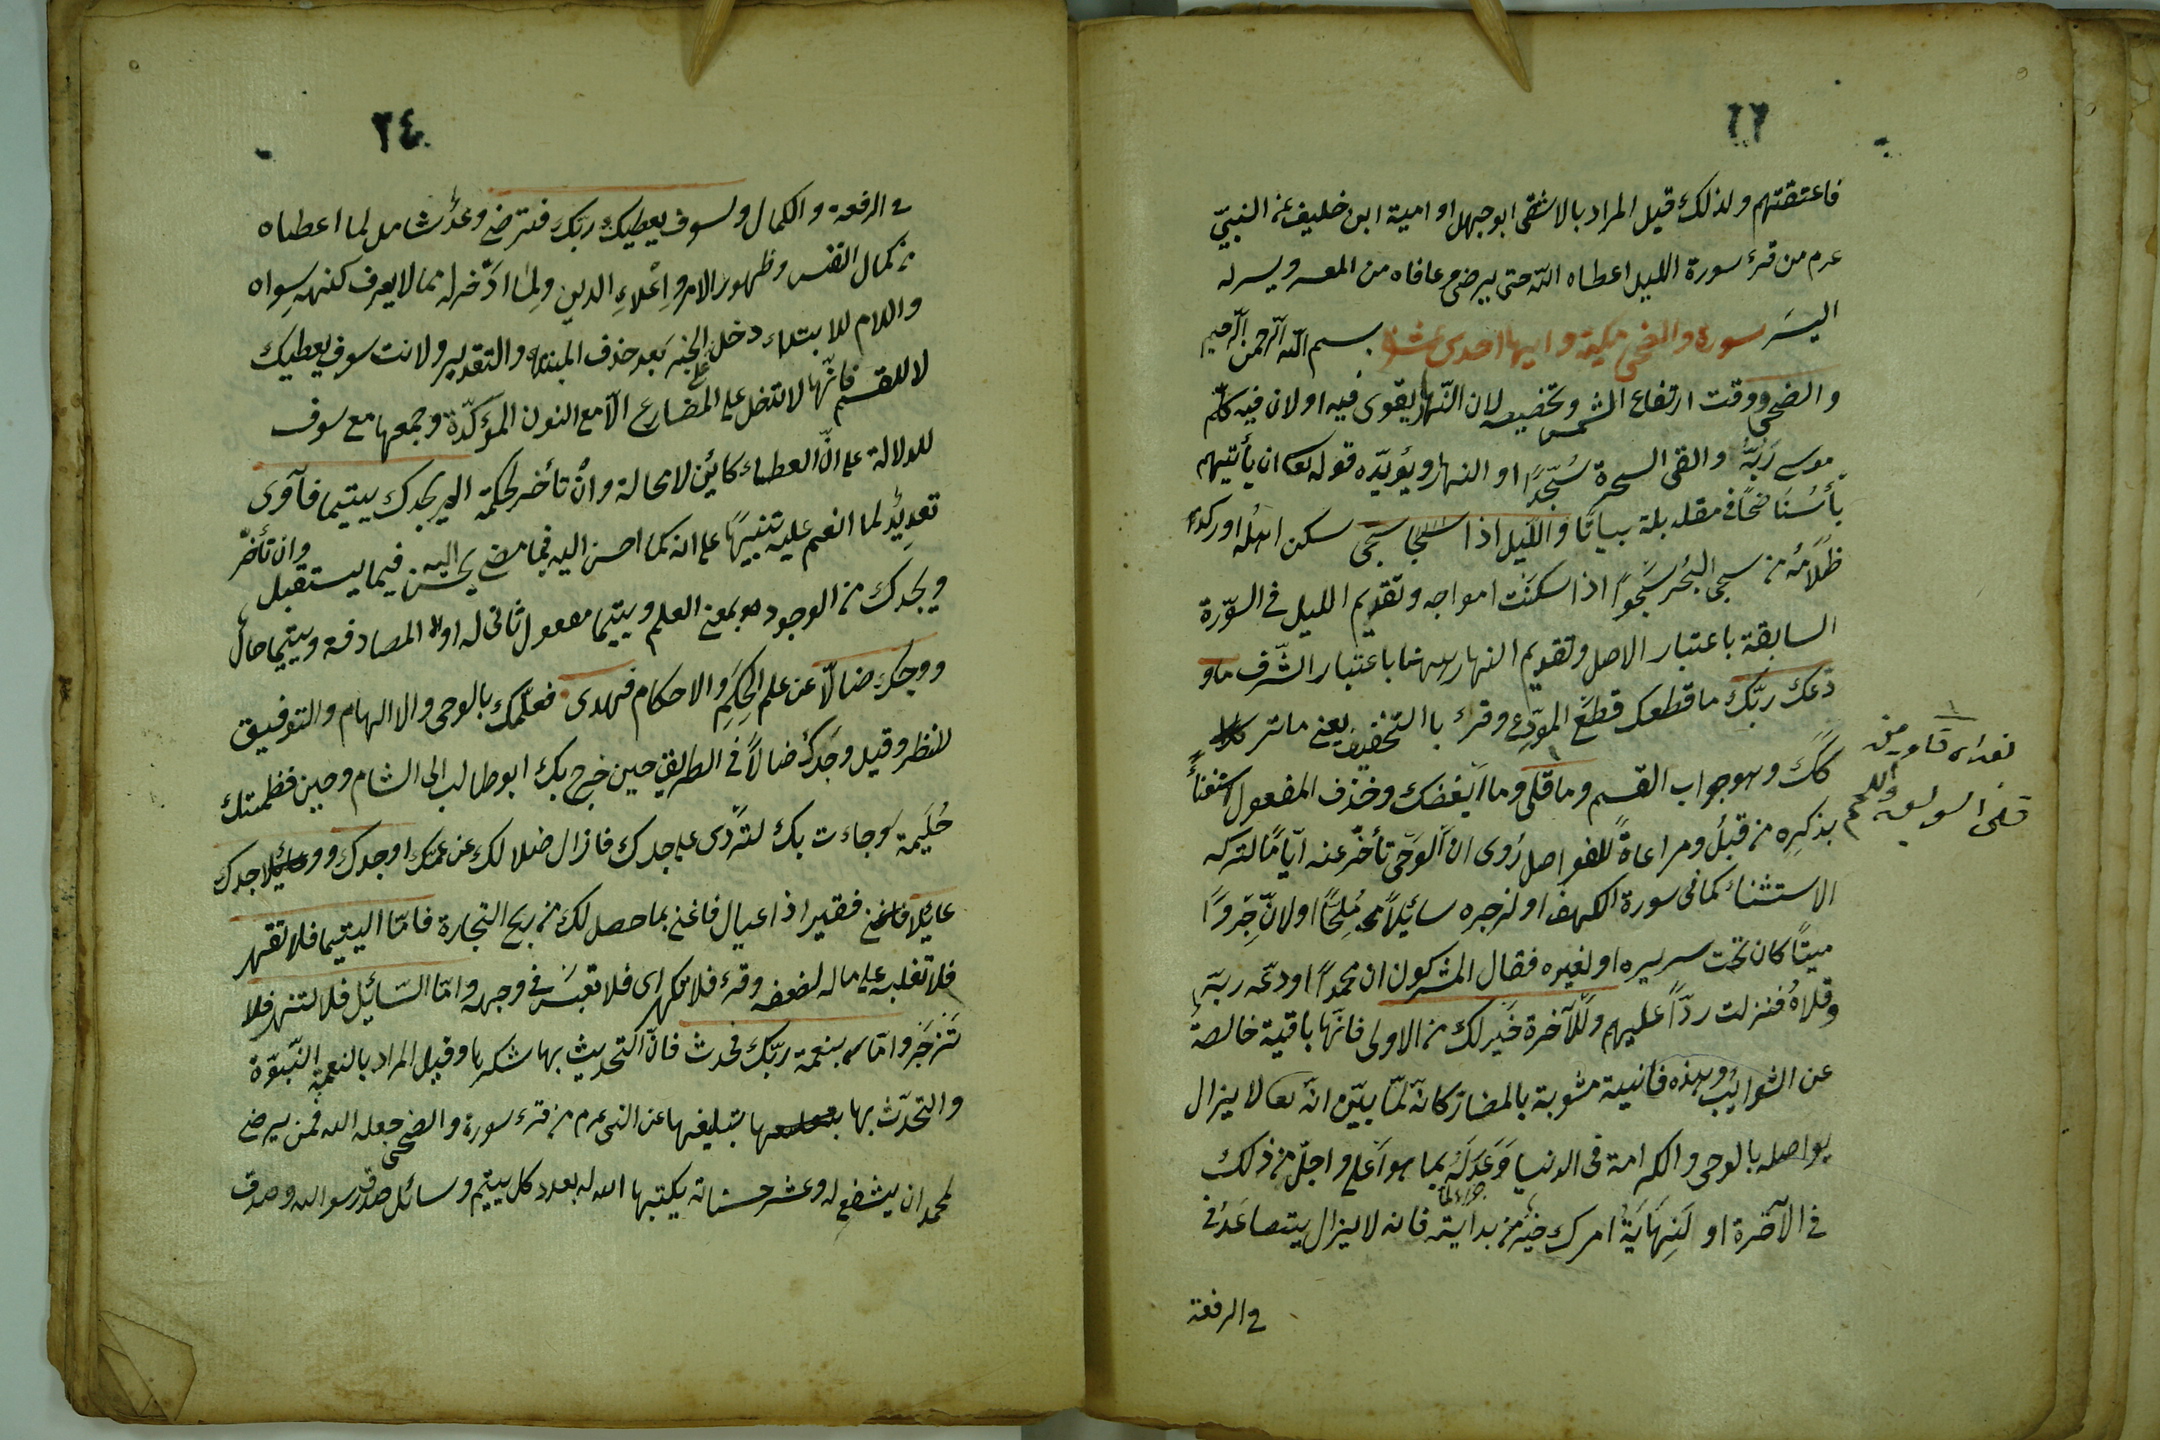 ٢٣
فاعتقتهم ولذلك قيل المراد بالاشقى ابو جهل او امية ابن خليف عن النبيّ
عرم من قرء سورة الليل اعطاه اللّه حتى يرضى وعافاه من العسر ويسر له
اليسَر سورة والضحى مكية وايها احدى عشر بسم اللّه الرّحمن الرّحيم
والضحى ووقت ارتفاع الشمس وتخصيصه لان النّهار يقوى فيه او لان فيه كلّم
موسى رَبُّهُ والقى السحرة سُجّدًا او النهار ويؤيدّه قوله تعا ان يأتيهم
بأسُنَا ضحًا فى مقلد بلة بياتًا والليل اذا سجى سكن اهلُه او ركد
ظلَامُه من سجى البحُر سَجوًا اذا سكنَت امواجه وتقديم الليل فى السّورة
السابقة باعتبار الاصل وتقديم النهار ههنا باعتبار الشّرف ما و
دّعك ربّك ما قطعك قطعَ المودِّع وقرء باالتخفيف يعنى ما تر
كك وهو جواب القسم وما قلى وما ابغضك وحُذف المفعول استغناءً
بذكرِه من قبلُ ومراعاةً للفواصل رُوى انّ الوَحَى تأخّر عنه ايّامًا لتركه
الاستثناء كما فى سورة الكهف او لزجره سائيلاً مُلِحًّا او لانّ جَروًا
ميتًا كان تحت سريره او لغيره فقال المشركون ان محمدًا اودعّه ربّه
وقلاهُ فنزلت ردًّا عليهم وللآخرة خَير لك من الاولى فانّها باقية خالصة
عن الشوايُب وهذه فانيية مشوبة بالمضارّ كانّه لمّا بيّن انّه تعا لا يزال
يواصله بالوحى والكرامة فى الدنيا وَعَدَلَهُ بما هو اَعلى واجلّ من ذلك
فى الآخرة او لَنِهَايَة امرك خير من بدايته فانه لا يزال يتصاعَدُ فى
فى الرفعة
٢٤
فى الرفعة والكمال ولسوف يعطيك ربّك فترضى وعدٌ شامل لما اعطاه
من كمال النفس وظهور الامر واِعْلاءِ الدين ولِمَا ادّخر له مما لا يعرف كنهه سِواه
واللام للابتداء دخل الخبر بعد حذف المبتداء والتقدير ولانت سوف يعطيك
لا للقسم فانّها لا تدخل على المضارع الّا مع النون المؤكدّة وجمعها مع سوف
للدلالة على انّ العطاء كايُن لا محالة وانْ تأخر لحكمة الم يجدك يتيما فآوى
تعديُد لما انعم عليه تنبيهًا على انه كما احسن اليه فيما مضى يحسن اليه فيما يستقبل وان تأخّر
ويجدك من الوجود هو بمعنى العلم ويتيما مفعول ثانى له او المصادفة ويتيما حال
ووجدك ضالّا عن علم الحِكَمِ والاحكام فهدى فعلّمك بالوحى والاالهام والتوفيق
للنظر وقيل وجَدَك ضالاً فى الطريق حين خرج بك ابو طالب الى الشام وحين فطمتك
حُلَيمة وجاءت بك لتَردّى على جدك فازال ضلالك عن عمّك او جدك ووجدك
عايُلا فاغنى فقيرا ذا عيال فاغنى بما حصل لك من ربح التجارة فامّا اليتيما فلا تقهر
فلا تغلبه على ماله لضعفه وقرء فلا تكهر اى فلا تعبَس فى وجهه وامّا السّائيل فلا تنهر فلا
تَزجَر وامّا بنعمة ربّك فحدث فانّ التحديث بها شكرها وقيل المراد بالنعمة النّبّوّة
والتحدّث بها تبليغها عن النبى عرم من قرء سورة والضحى جعله الله فمن يرضى
لمحمد ان يشفع له وعشر حسناته يكتبها الله له بعدد كل يتيم وسائل صدق رسو الله وصدق